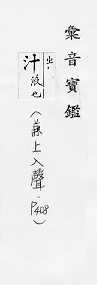 彙音寶鑑
汁 液也
(兼上入聲‧P408)